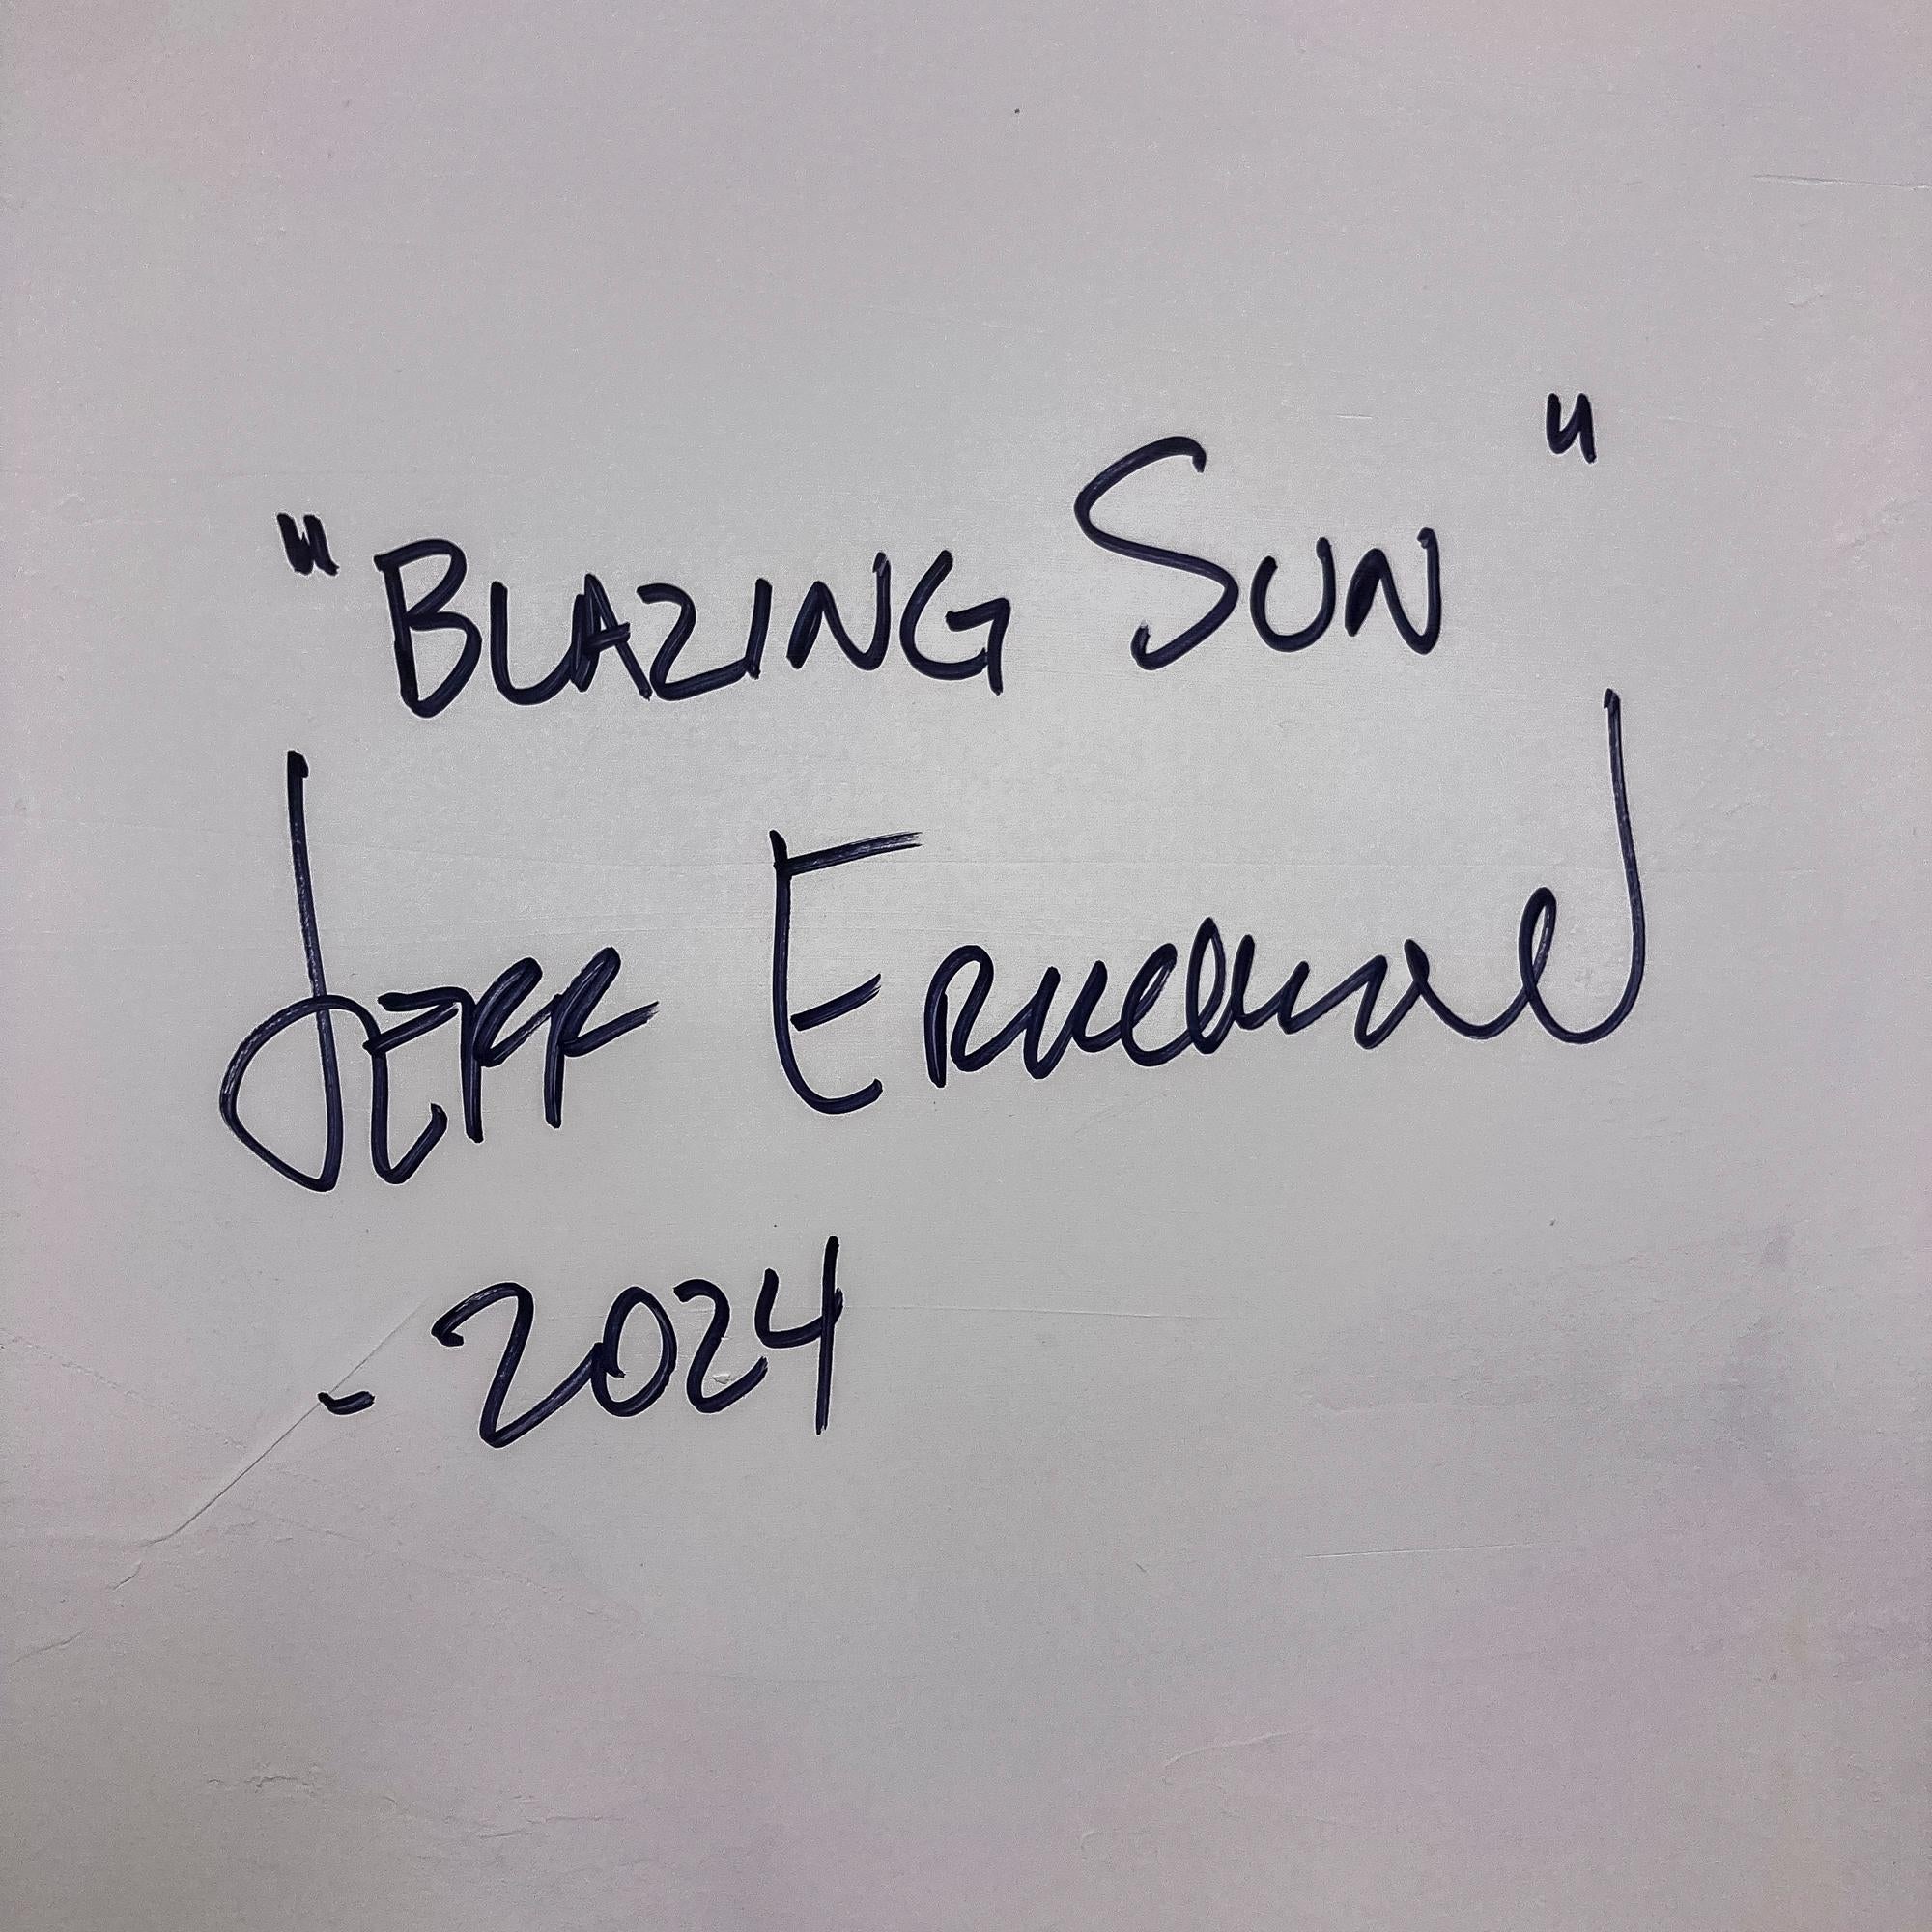 "BLAZING SUN"
JEFF
-2024